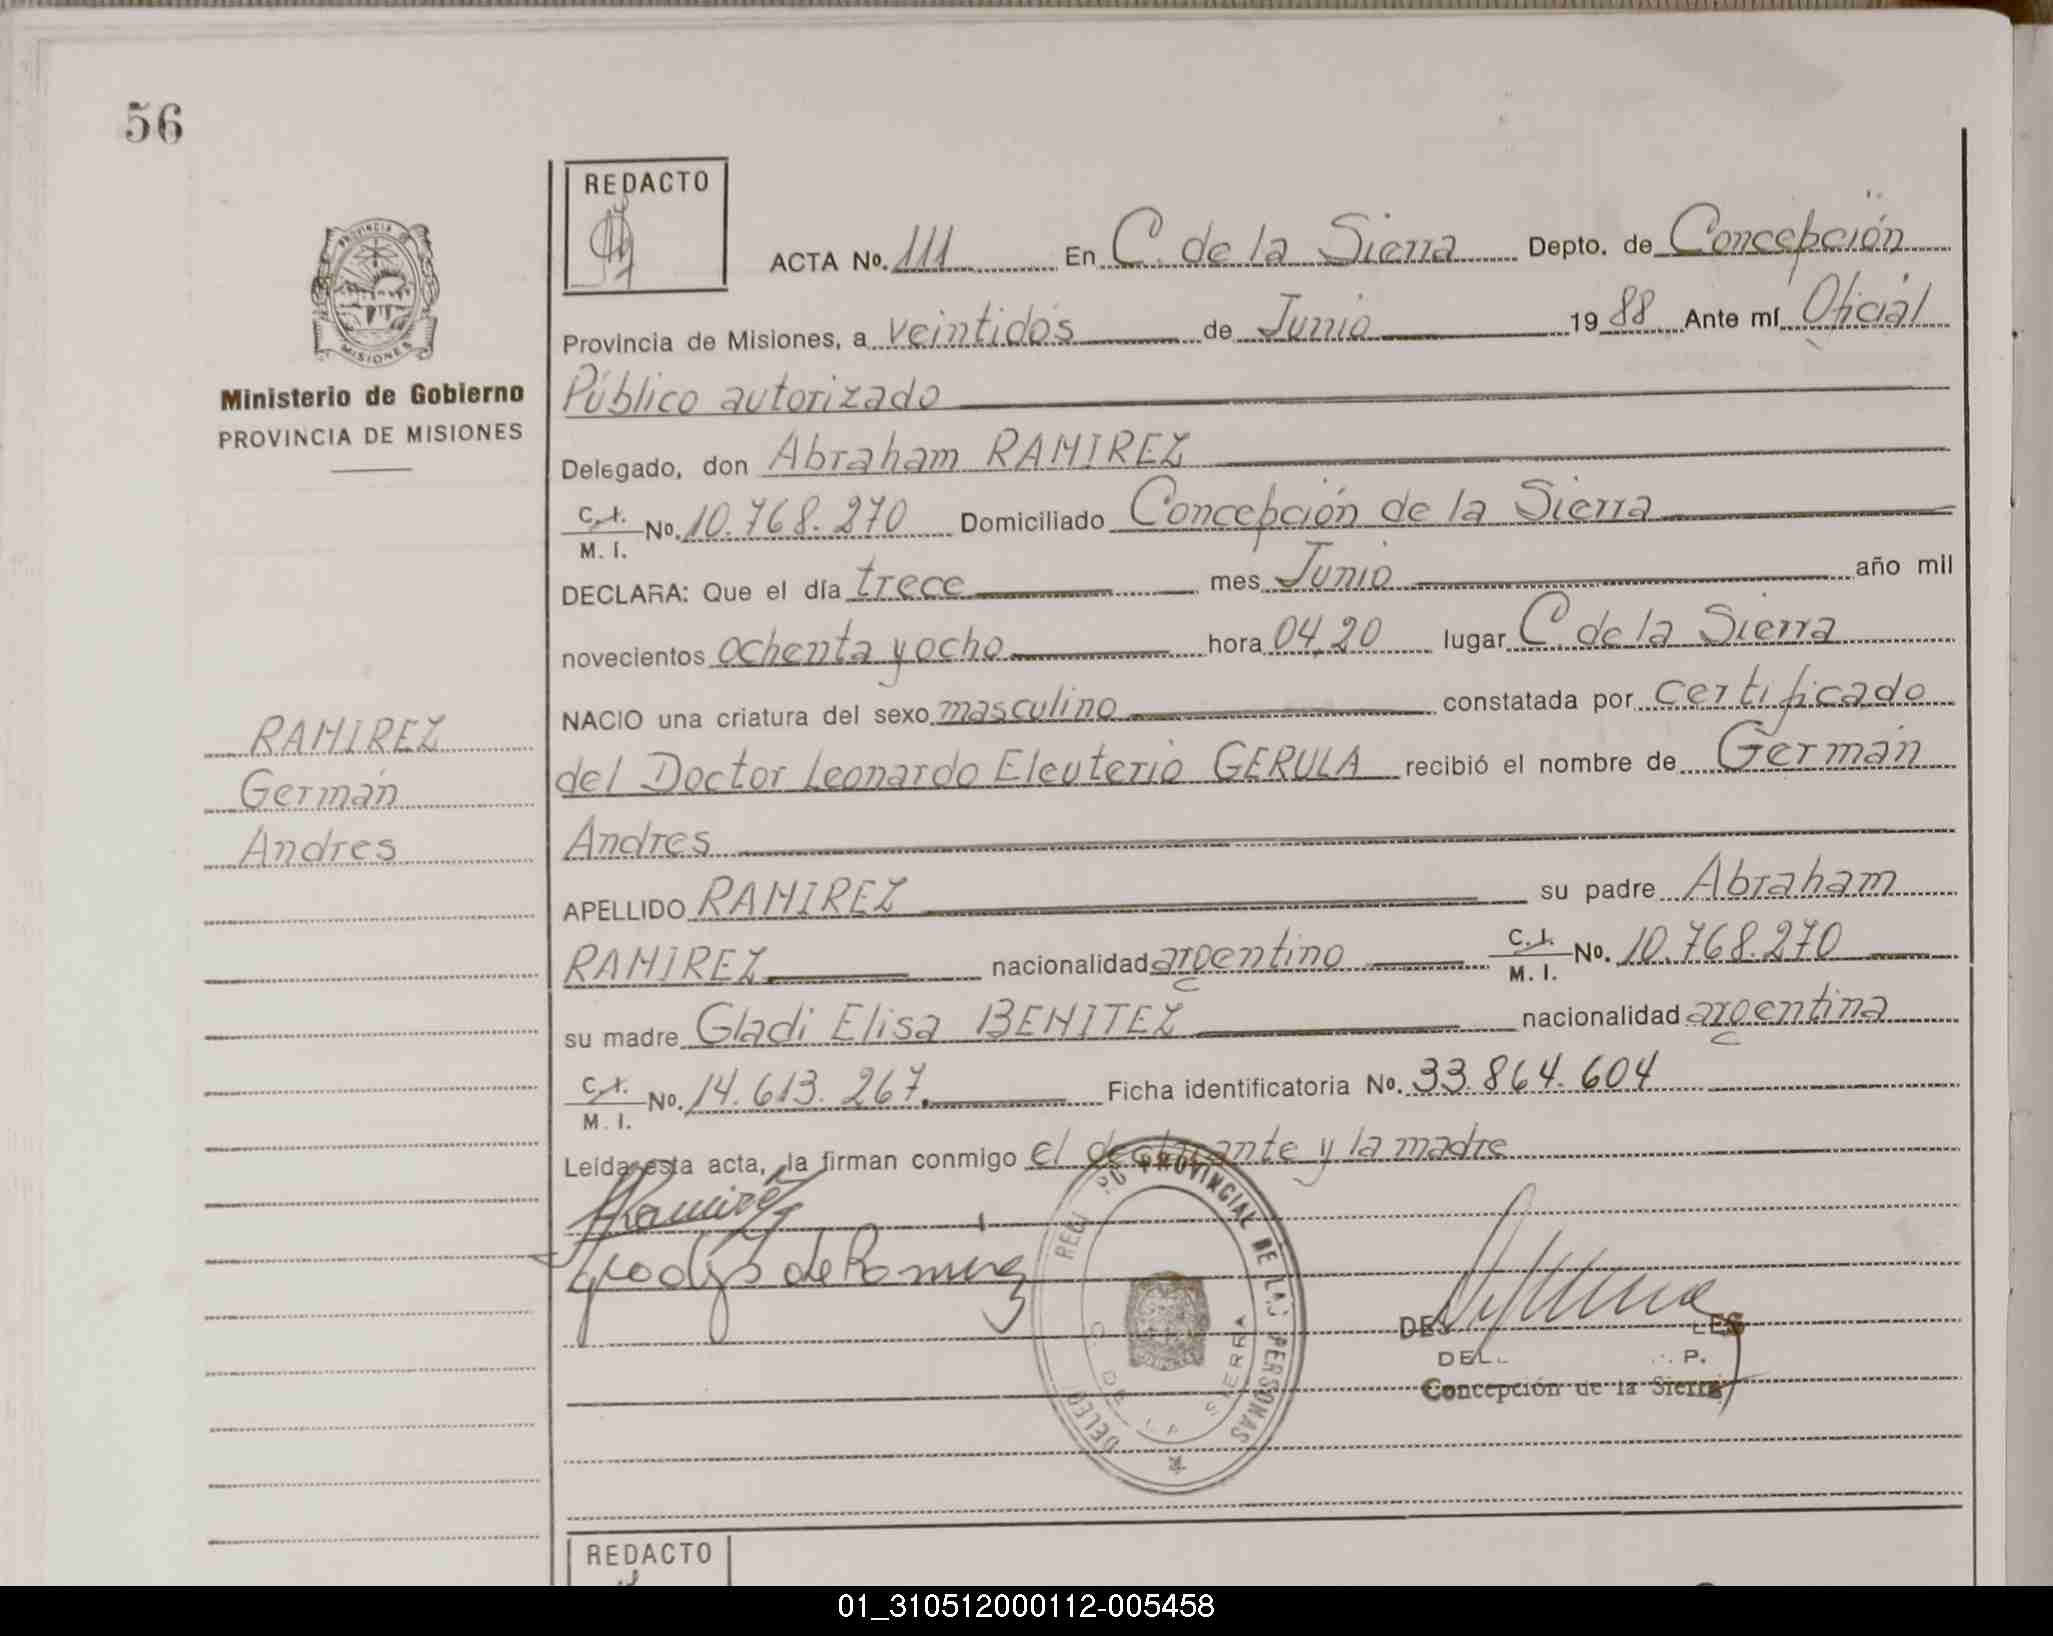 56
REDACTO
PROVINCIA DE
MISIONES
Ministerio de Gobierno
PROVINCIA DE MISIONES
RAMIREZ
Germán
Andres
ACTA No. 111 En C. de la Sierra Depto. de Concepción
Provincia de Misiones, a veintidós de Junio 19 88 Ante mí Oficial
Público autorizado
Delegado, don Abraham RAMIREZ
C.I. M.I. No. 10.768.270 Domiciliado Concepción de la Sierra
DECLARA: Que el día trece mes Junio año mil
novecientos ochenta y ocho hora 04,20 lugar C. de la Sierra
NACIO una criatura del sexo masculino constatada por certificado
del Doctor Leonardo Eleuterio GERULA recibió el nombre de Germán
Andres
APELLIDO RAMIREZ su padre Abraham
RAMIREZ nacionalidad argentino C.I. M.I. No. 10.768.270
su madre Gladi Elisa BENITEZ nacionalidad argentina
C.I. M.I. No. 14.613.267. Ficha identificatoria No. 33.864.604
Leída esta acta, la firman conmigo el declarante y la madre
ARamirez
Gladys de Ramirez
PROVINCIAL DE LAS PERSONAS
DELEG
C. DE LA SIERRA
DEL. P.
Concepción de la Sierra
REDACTO
01_310512000112-005458